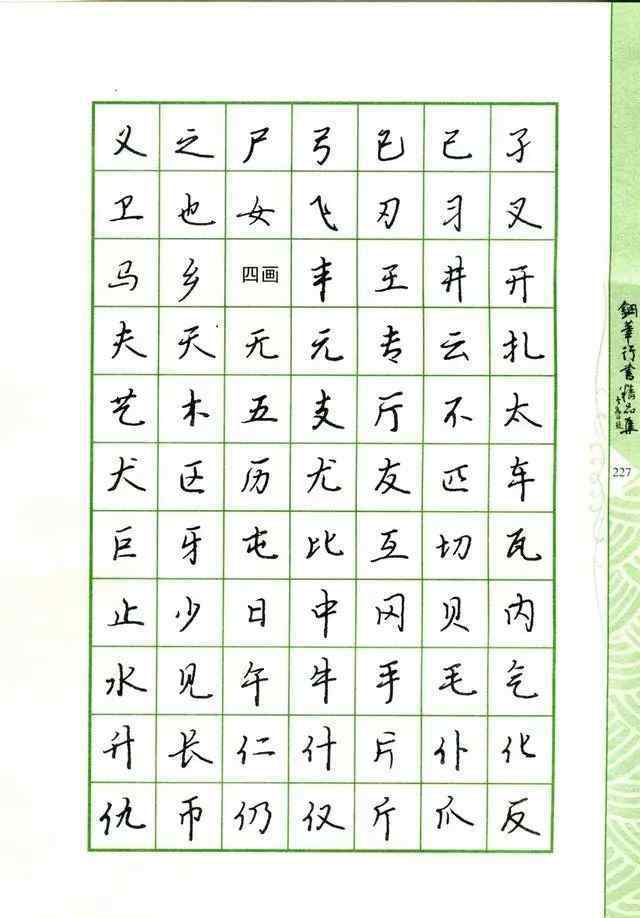 义之尸弓已己子
卫也女飞刃习叉
马乡四画丰王井开
夫天无元专云扎
艺木五支厅不太
犬区历尤友匹车
巨牙屯比互切瓦
止少日中冈贝内
水见午牛手毛气
升长仁什片仆化
仇币仍仅斤爪反
钢笔行书精品集
227